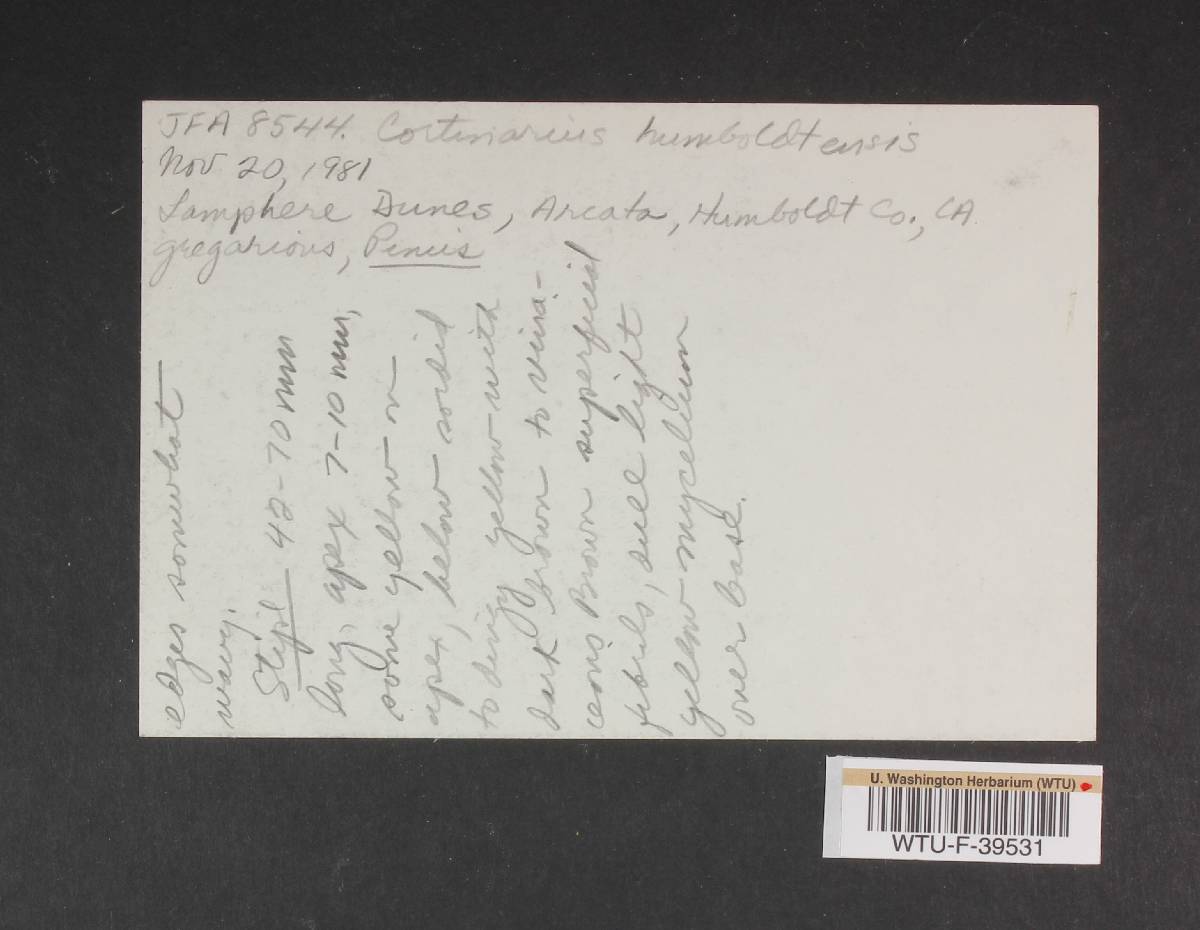 JFA 8544. Cortinarius humboldtensis
Nov 20, 1981
Lamphere Dunes, Arcata, Humboldt Co., CA.
gregarious, Pinus
edges somewhat
wavy.
Stipe 42-70 mm
long, apex 7-10 mm,
some yellow on
apex, below sordid
to dingy yellow with
dark brown to vina-
ceous Brown superficial
fibrils, dull light
yellow mycelium
over base.
U. Washington Herbarium (WTU)
WTU-F-39531